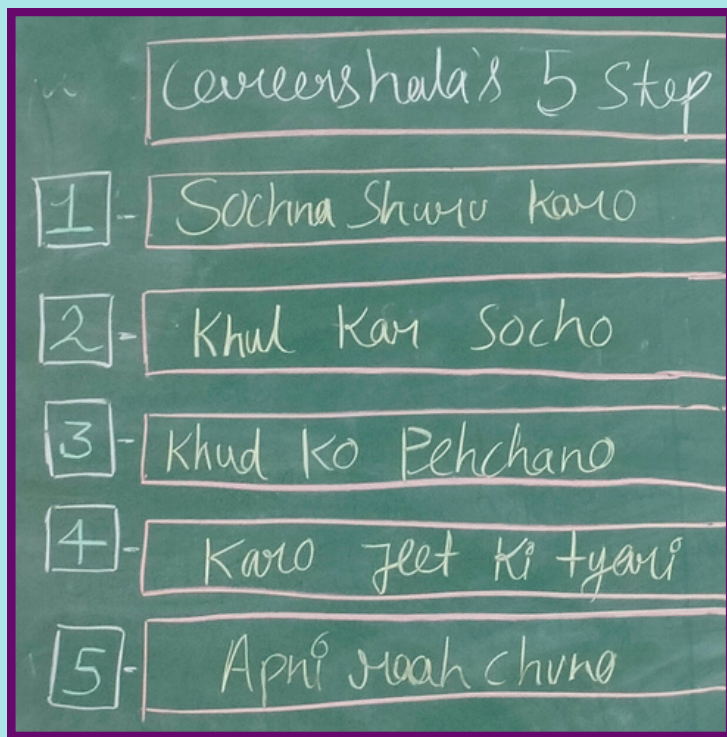 Careershala's 5 Step
1 - Sochna Shuru karo
2 - Khul Kar Socho
3 - Khud Ko Pehchano
4 - Karo Jeet Ki tyari
5 - Apni raah chuno